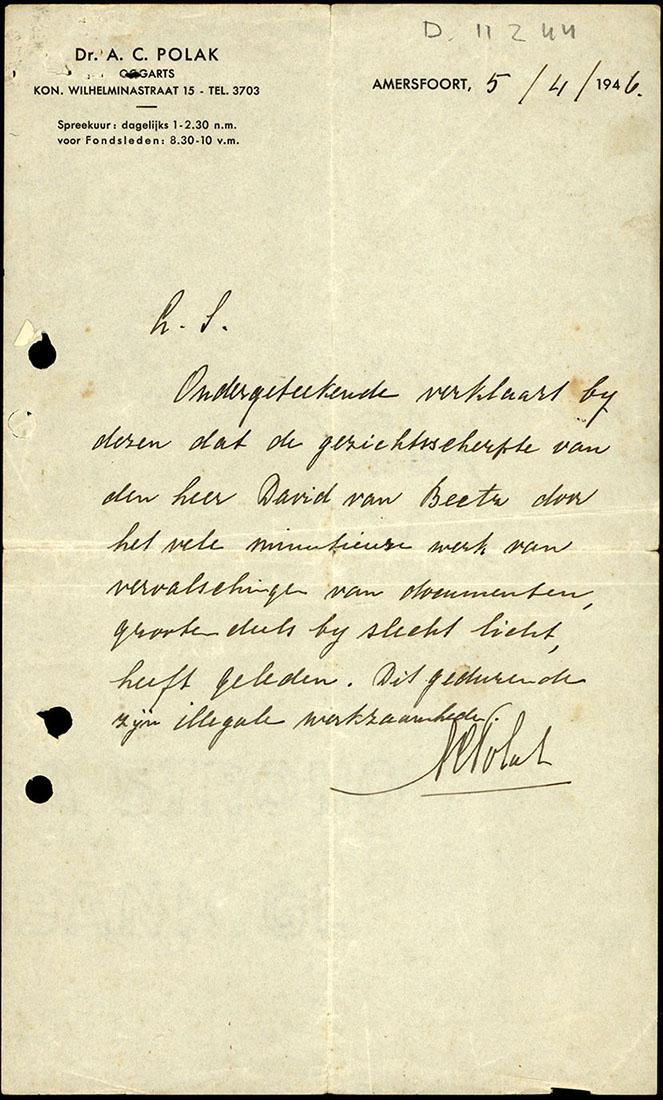 D. 11244
Dr. A. C. POLAK
OOGARTS
KON. WILHELMINASTRAAT 15 - TEL. 3703
Spreekuur: dagelijks 1-2.30 n.m.
voor Fondsleden: 8.30-10 v.m.
AMERSFOORT, 5/4/1946.
L. S.
Ondergeteekende verklaart by
dezen dat de gezichtsscherpte van
den heer David van Beetz door
het vele minutieuze werk van
vervalschingen van documenten,
grootendeels by slecht licht,
heeft geleden. Dit gedurende
zijn illegale werkzaamheden.
ACPolak